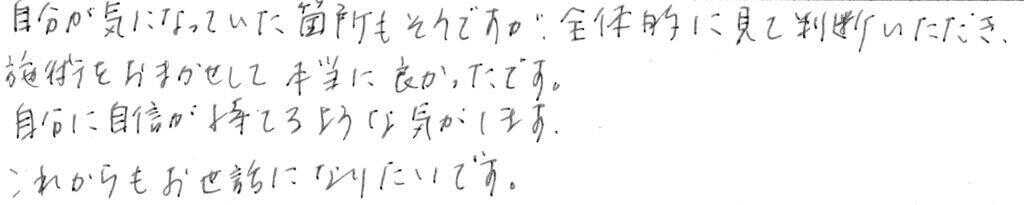 自分が気になっていた箇所もそうですが、全体的に見て判断いただき、
施術をおまかせして本当に良かったです。
自分に自信が持てるような気がします。
これからもお世話になりたいです。